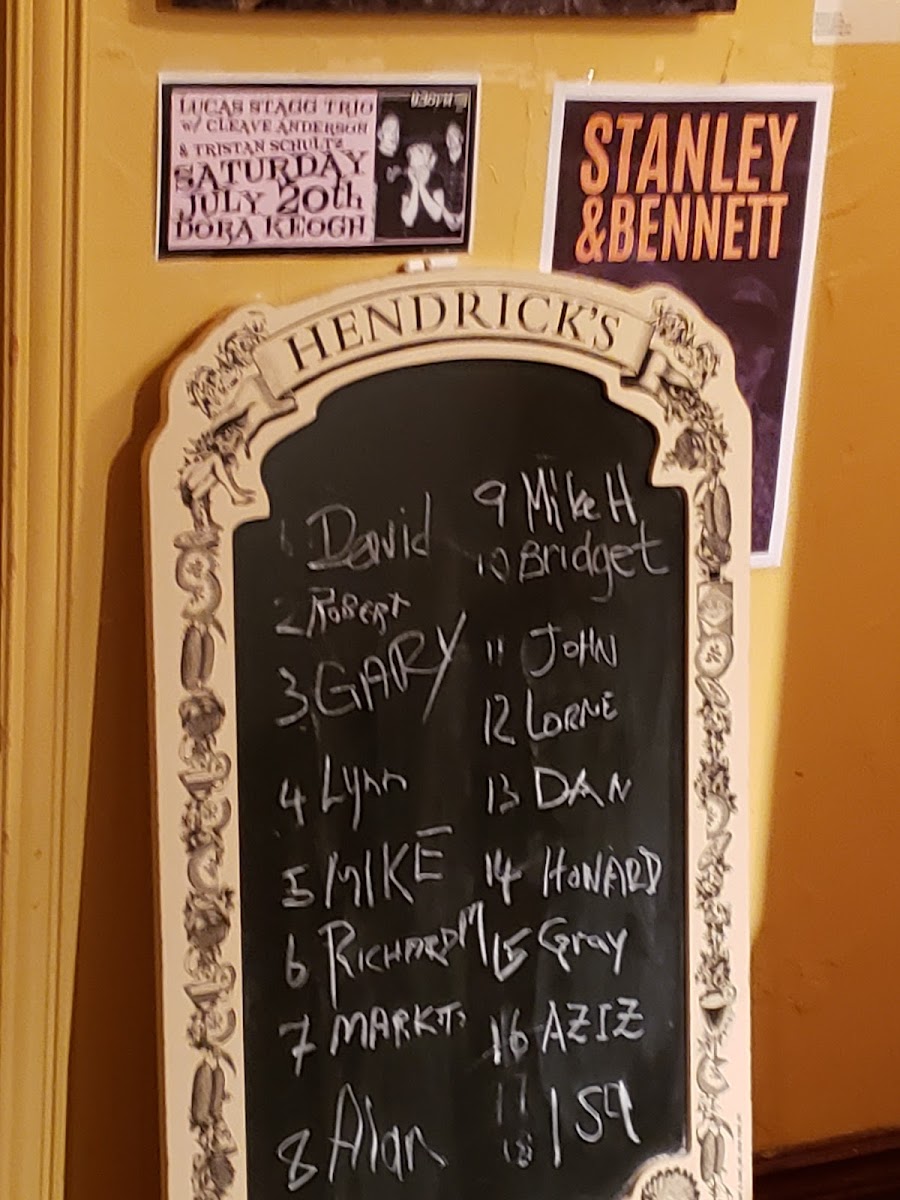 LUCAS STAGG TRIO
W/ CLEAVE ANDERSON
& TRISTAN SCHULTZ
SATURDAY
JULY 20th
DORA KEOGH
STANLEY
&BENNETT
HENDRICK'S
1 David
2 ROBERT
3 GARY
4 Lynn
5 MIKE
6 RICHARD M
7 MARK T.
8 Alan
9 Mike H
10 Bridget
11 JOHN
12 LORNE
13 DAN
14 HOWARD
15 Gray
16 AZIZ
17
18